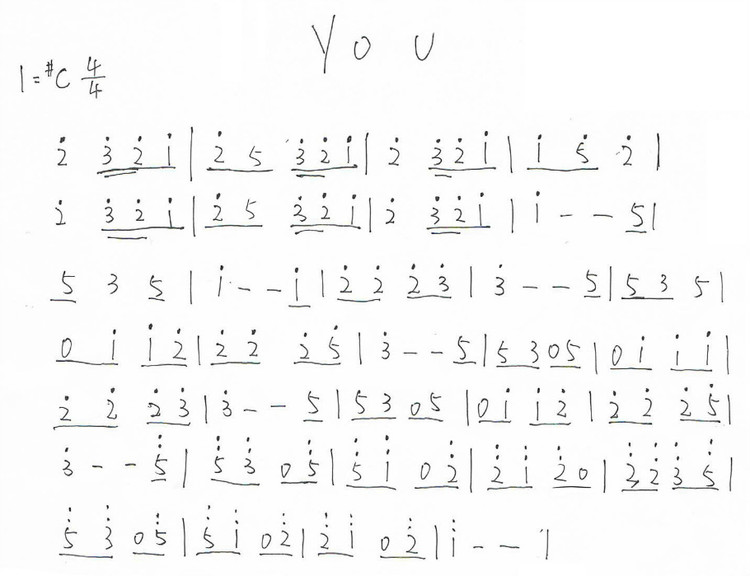 You
1=#C 4/4
2̇ 3̇ 2̇ 1̇ | 2̇ 5 3̇ 2̇ 1̇ | 2̇ 3̇ 2̇ 1̇ | 1̇ 5̇ 2̇ |
2̇ 3̇ 2̇ 1̇ | 2̇ 5 3̇ 2̇ 1̇ | 2̇ 3̇ 2̇ 1̇ | 1̇ - - 5 |
5 3 5 | 1̇ - - 1̇ | 2̇ 2̇ 2̇ 3̇ | 3̇ - - 5 | 5 3 5 |
0 1̇ 1̇ 2̇ | 2̇ 2̇ 2̇ 5̇ | 3̇ - - 5 | 5 3 0 5 | 0 1̇ 1̇ 1̇ |
2̇ 2̇ 2̇ 3̇ | 3̇ - - 5 | 5 3 0 5 | 0 1̇ 1̇ 2̇ | 2̇ 2̇ 2̇ 5̇ |
3̇ - - 5̇ | 5̇ 3̇ 0 5̇ | 5̇ 1̇ 0 2̇ | 2̇ 1̇ 2̇ 0 | 2̇ 2̇ 3̇ 5̇ |
5̇ 3̇ 0 5̇ | 5̇ 1̇ 0 2̇ | 2̇ 1̇ 0 2̇ | 1̇ - - |